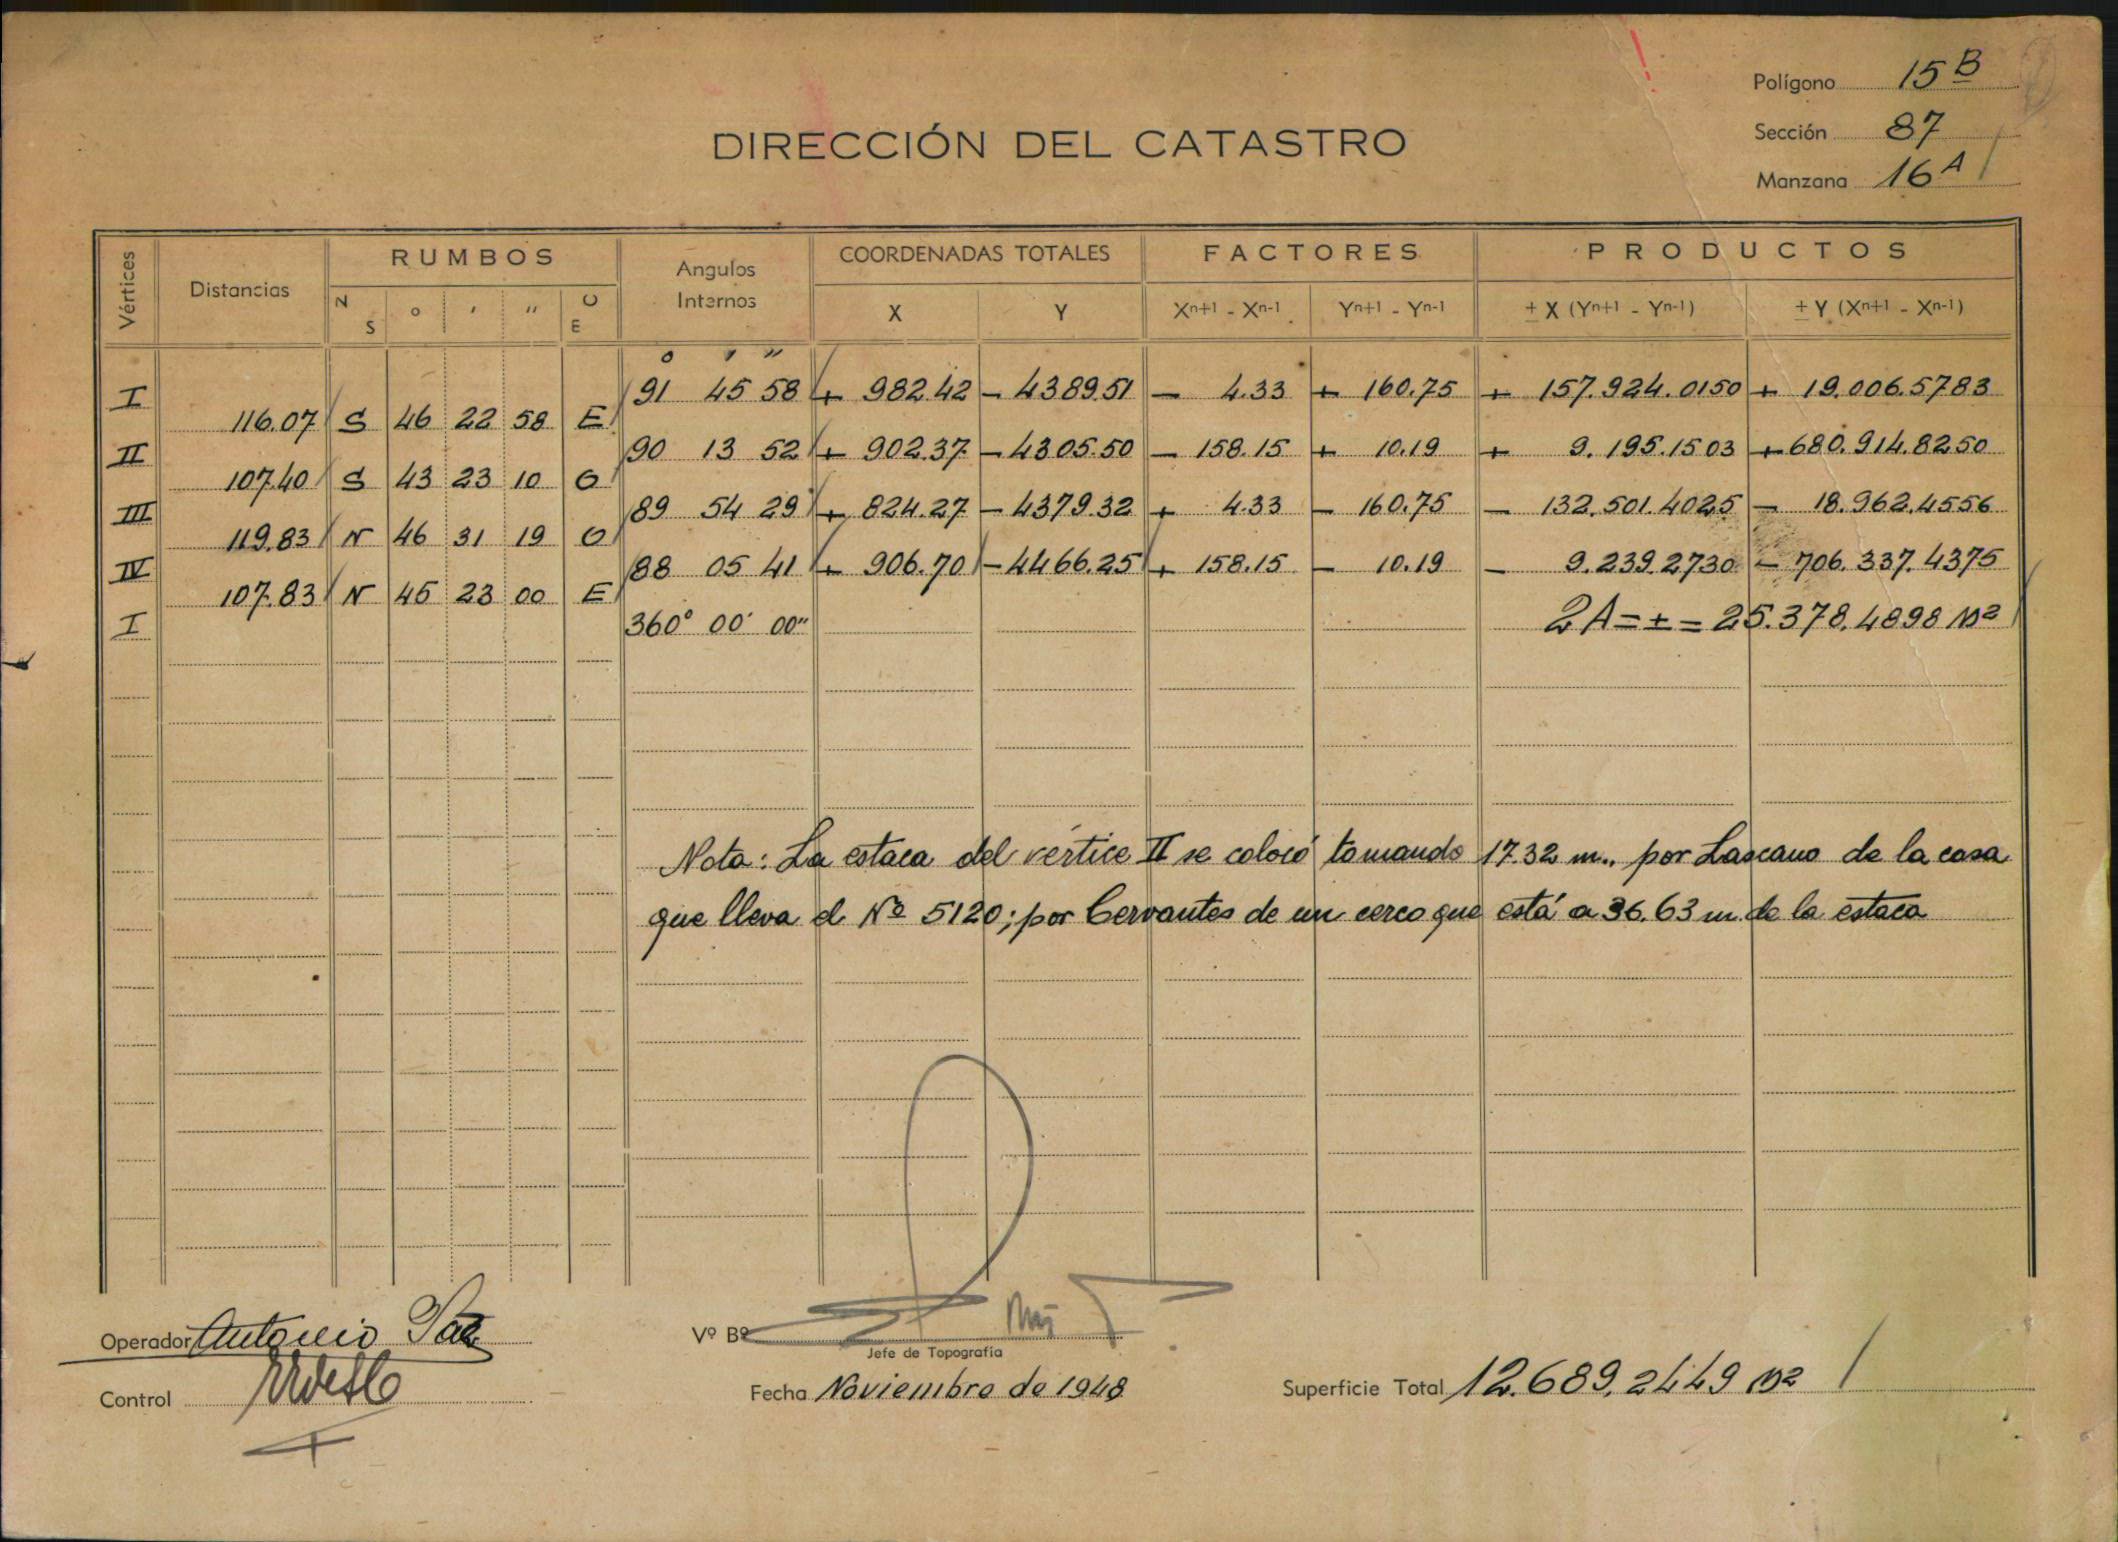 Polígono 15 B
DIRECCIÓN DEL CATASTRO
Sección 87
Manzana 16 A
Vértices Distancias RUMBOS Angulos Internos COORDENADAS TOTALES FACTORES PRODUCTOS
N S ° ' " O E X Y Xn+1 - Xn-1 Yn+1 - Yn-1 ± X (Yn+1 - Yn-1) ± Y (Xn+1 - Xn-1)
° ' "
I 91 45 58 + 982.42 - 4389.51 - 4.33 + 160.75 + 157.924.0150 + 19.006.5783
116.07 S 46 22 58 E
II 90 13 52 + 902.37 - 4305.50 - 158.15 + 10.19 + 9.195.1503 + 680.914.8250
107.40 S 43 23 10 O
III 89 54 29 + 824.27 - 4379.32 + 4.33 - 160.75 - 132.501.4025 - 18.962.4556
119.83 N 46 31 19 O
IV 88 05 41 + 906.70 - 4466.25 + 158.15 - 10.19 - 9.239.2730 - 706.337.4375
107.83 N 45 23 00 E
I 360° 00' 00" 2A = ± = 25.378.4898 m2
Nota: La estaca del vértice II se colocó tomando 17.32 m. por Lascano de la casa
que lleva el Nº 5120; por Cervantes de un cerco que está a 36.63 m. de la estaca
Operador Antonio Paz
Vº Bº
Jefe de Topografía
Control
Fecha Noviembre de 1948
Superficie Total 12.689.2449 m2